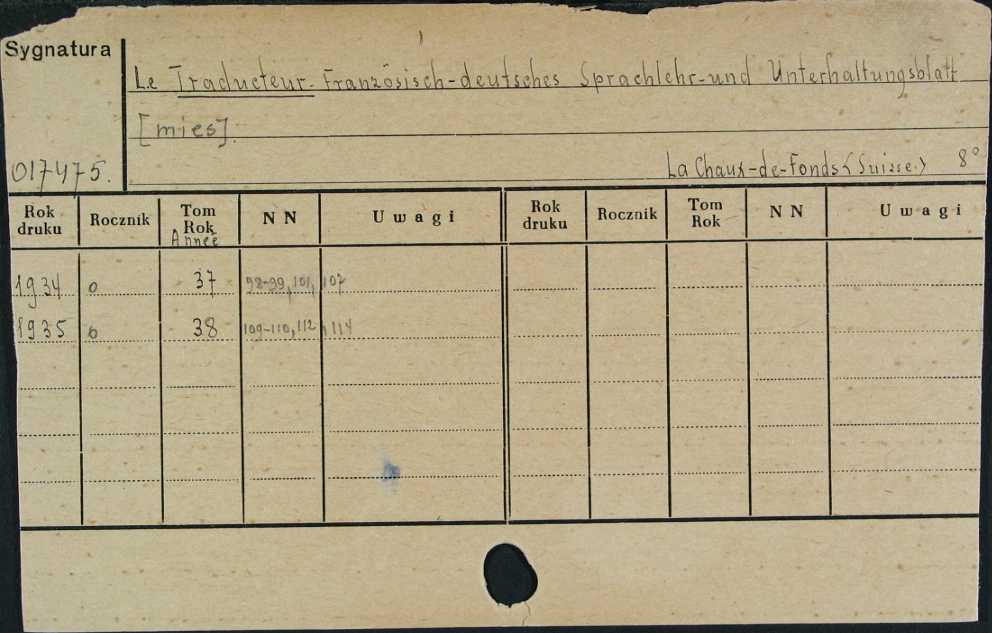 Sygnatura
Le Traducteur. Französisch-deutsches Sprachlehr-und Unterhaltungsblatt
[mies].
017475.
La Chaux-de-Fonds (Suisse.) 8°
Rok druku Rocznik Tom Rok Année NN Uwagi Rok druku Rocznik Tom Rok NN Uwagi
1934 0 37 98-99, 101, 107
1935 0 38 109-110, 112, 114